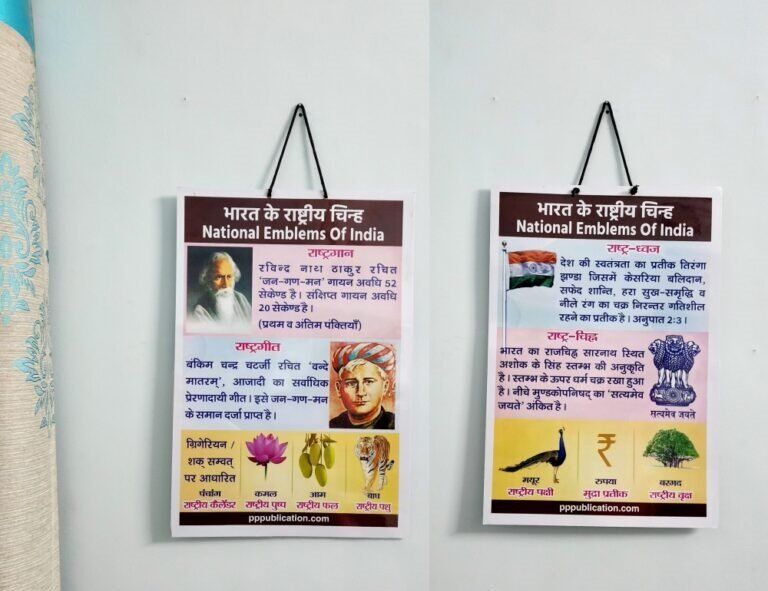 भारत के राष्ट्रीय चिन्ह
National Emblems Of India
राष्ट्रगान
रविन्द्र नाथ ठाकुर रचित
'जन-गण-मन' गायन अवधि 52
सेकेण्ड है। संक्षिप्त गायन अवधि
20 सेकेण्ड है।
(प्रथम व अंतिम पंक्तियाँ)
राष्ट्रगीत
बंकिम चन्द्र चटर्जी रचित 'वन्दे
मातरम्', आजादी का सर्वाधिक
प्रेरणादायी गीत। इसे जन-गण-मन
के समान दर्जा प्राप्त है।
ग्रिगेरियन /
शक् सम्वत्
पर आधारित
पंचांग
राष्ट्रीय कैलेंडर
कमल
राष्ट्रीय पुष्प
आम
राष्ट्रीय फल
बाघ
राष्ट्रीय पशु
pppublication.com
भारत के राष्ट्रीय चिन्ह
National Emblems Of India
राष्ट्र-ध्वज
देश की स्वतंत्रता का प्रतीक तिरंगा
झण्डा जिसमें केसरिया बलिदान,
सफेद शान्ति, हरा सुख-समृद्धि व
नीले रंग का चक्र निरन्तर गतिशील
रहने का प्रतीक है। अनुपात 2:3।
राष्ट्र-चिह्न
भारत का राजचिह्न सारनाथ स्थित
अशोक के सिंह स्तम्भ की अनुकृति
है। स्तम्भ के ऊपर धर्म चक्र रखा हुआ
है। नीचे मुण्डकोपनिषद् का 'सत्यमेव
जयते' अंकित है।
सत्यमेव जयते
मयूर
राष्ट्रीय पक्षी
₹
रुपया
मुद्रा प्रतीक
बरगद
राष्ट्रीय वृक्ष
pppublication.com